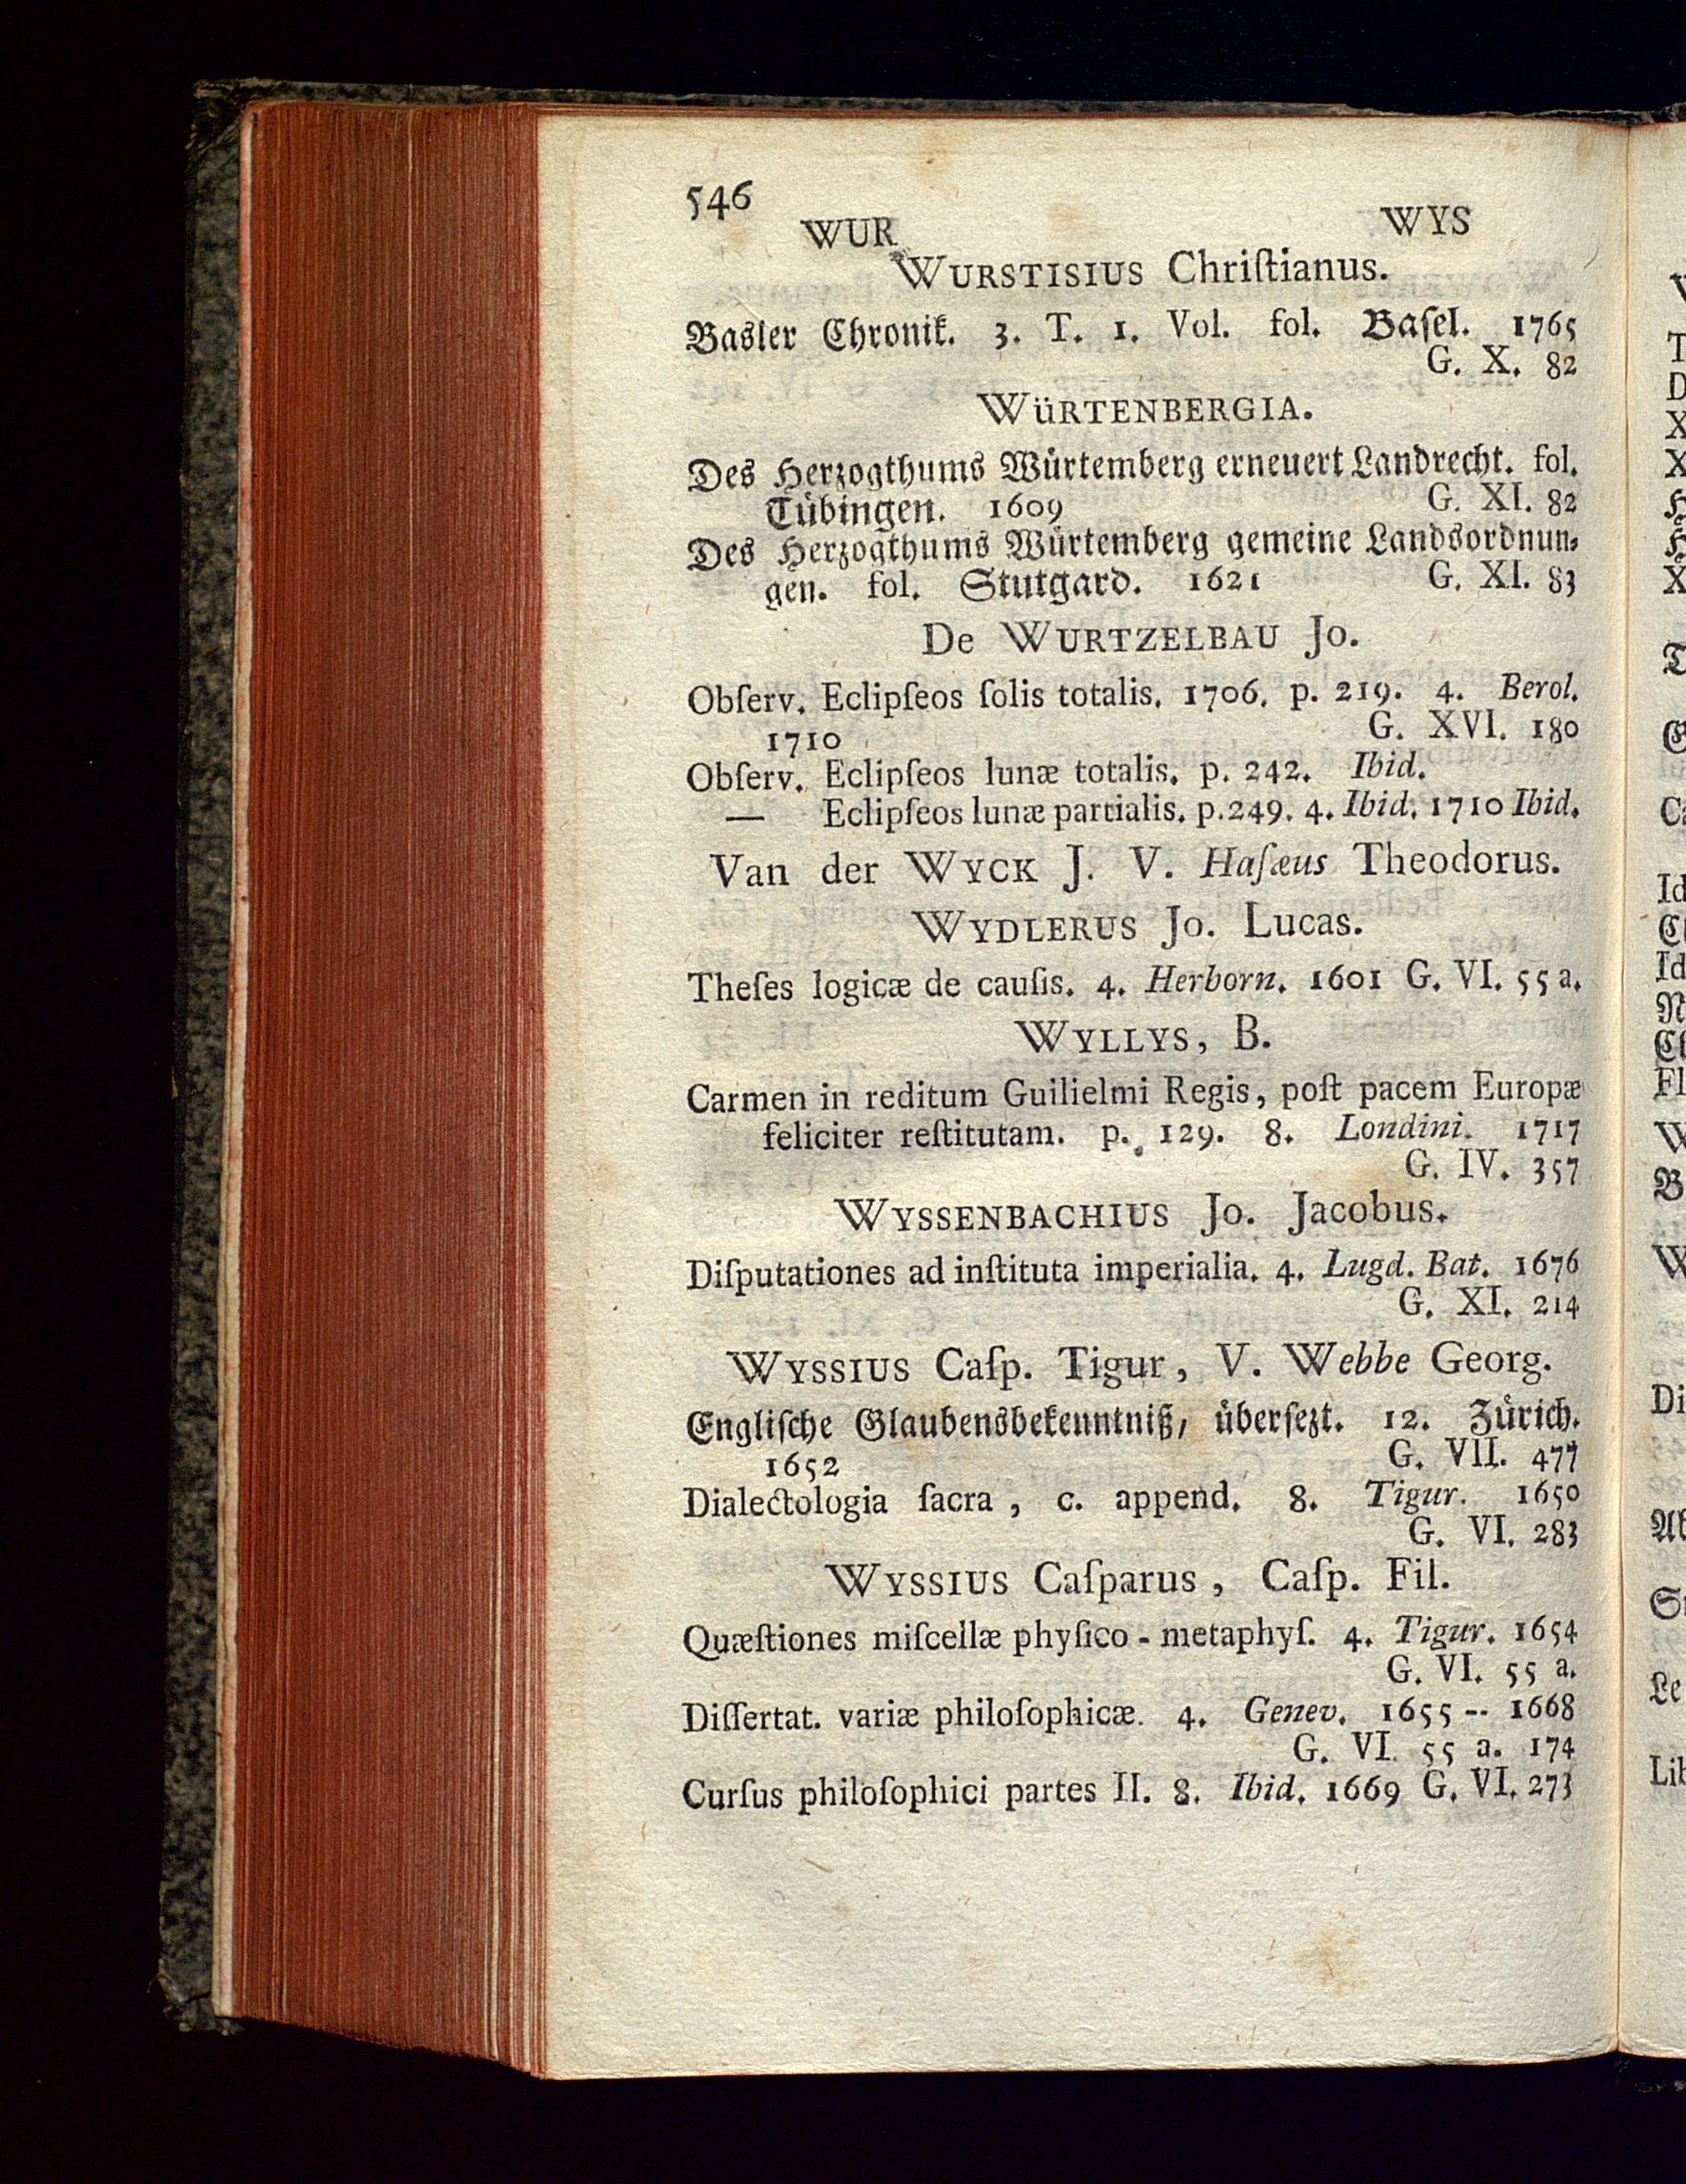 546
WUR WYS
WURSTISIUS Chriſtianus.
Basler Chronik. 3. T. 1. Vol. fol. Baſel. 1765
G. X. 82
WüRTENBERGIA.
Des Herzogthums Würtemberg erneuert Landrecht. fol.
Tübingen. 1609 G. XI. 82
Des Herzogthums Würtemberg gemeine Landsordnun-
gen. fol. Stutgard. 1621 G. XI. 83
De WURTZELBAU Jo.
Obſerv. Eclipſeos ſolis totalis. 1706. p. 219. 4. Berol.
1710 G. XVI. 180
Obſerv. Eclipſeos lunæ totalis. p. 242. Ibid.
— Eclipſeos lunæ partialis. p. 249. 4. Ibid. 1710 Ibid.
Van der WYCK J. V. Haſæus Theodorus.
WYDLERUS Jo. Lucas.
Theſes logicæ de cauſis. 4. Herborn. 1601 G. VI. 55 a.
WYLLYS, B.
Carmen in reditum Guilielmi Regis, poſt pacem Europæ
feliciter reſtitutam. p. 129. 8. Londini. 1717
G. IV. 357
WYSSENBACHIUS Jo. Jacobus.
Diſputationes ad inſtituta imperialia. 4. Lugd. Bat. 1676
G. XI. 214
WYSSIUS Caſp. Tigur, V. Webbe Georg.
Engliſche Glaubensbekenntniß, überſezt. 12. Zürich.
1652 G. VII. 477
Dialectologia ſacra, c. append. 8. Tigur. 1650
G. VI. 283
WYSSIUS Caſparus, Caſp. Fil.
Quæſtiones miſcellæ phyſico-metaphyſ. 4. Tigur. 1654
G. VI. 55 a.
Diſſertat. variæ philoſophicæ. 4. Genev. 1655 -- 1668
G. VI. 55 a. 174
Curſus philoſophici partes II. 8. Ibid. 1669 G. VI. 273